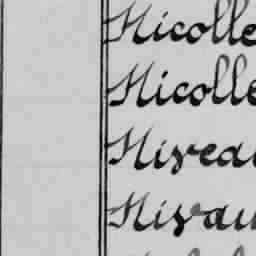 Nicolle
Nicolle
Niveau
Nivau